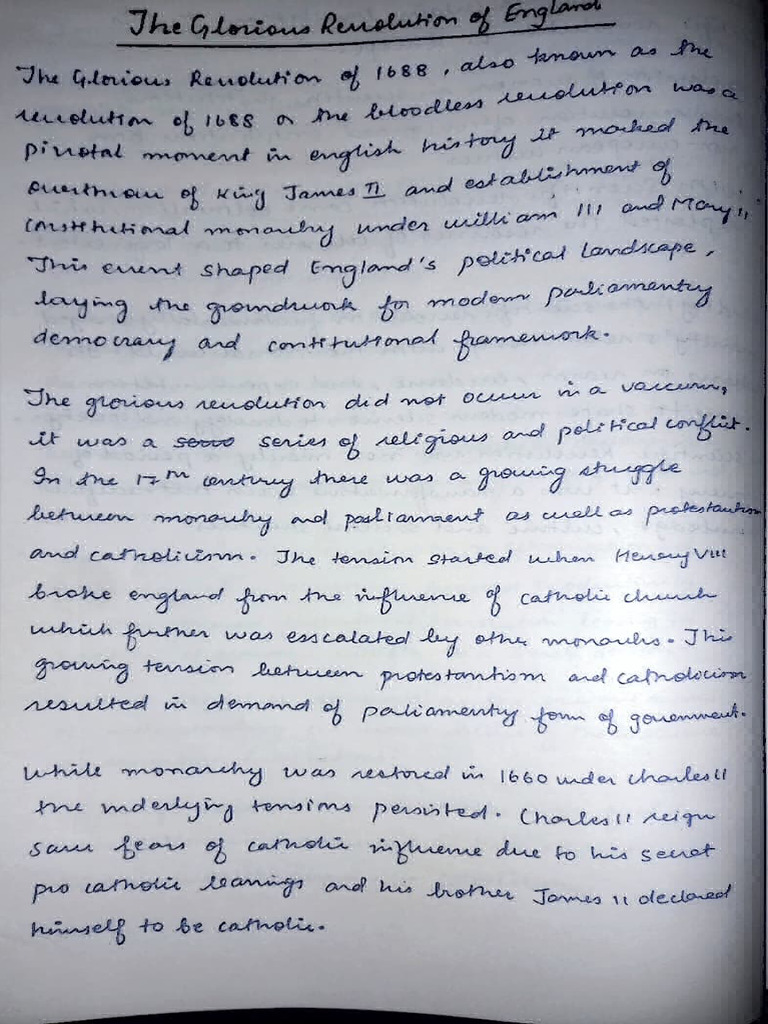 The Glorious Revolution of England
The Glorious Revolution of 1688, also known as the
revolution of 1688 or the bloodless revolution was a
pivotal moment in english history it marked the
overthrow of King James II and establishment of
constitutional monarchy under william III and Mary II
This event shaped England's political landscape,
laying the groundwork for modern parliamentry
democracy and contitutional framework.
The glorious revolution did not occur in a vaccum,
it was a series of religious and political conflict.
In the 17th century there was a growing struggle
between monarchy and parliament as well as protestantism
and catholicism. The tension started when Henery VIII
broke england from the influence of catholic church
which further was esscalated by other monarchs. This
growing tension between protestantism and catholocism
resulted in demand of paliamentry form of government.
While monarchy was restored in 1660 under charles II
the underlying tensions persisted. Charles II reign
saw fears of catholic influence due to his secret
pro catholic leanings and his brother James II declared
himself to be catholic.